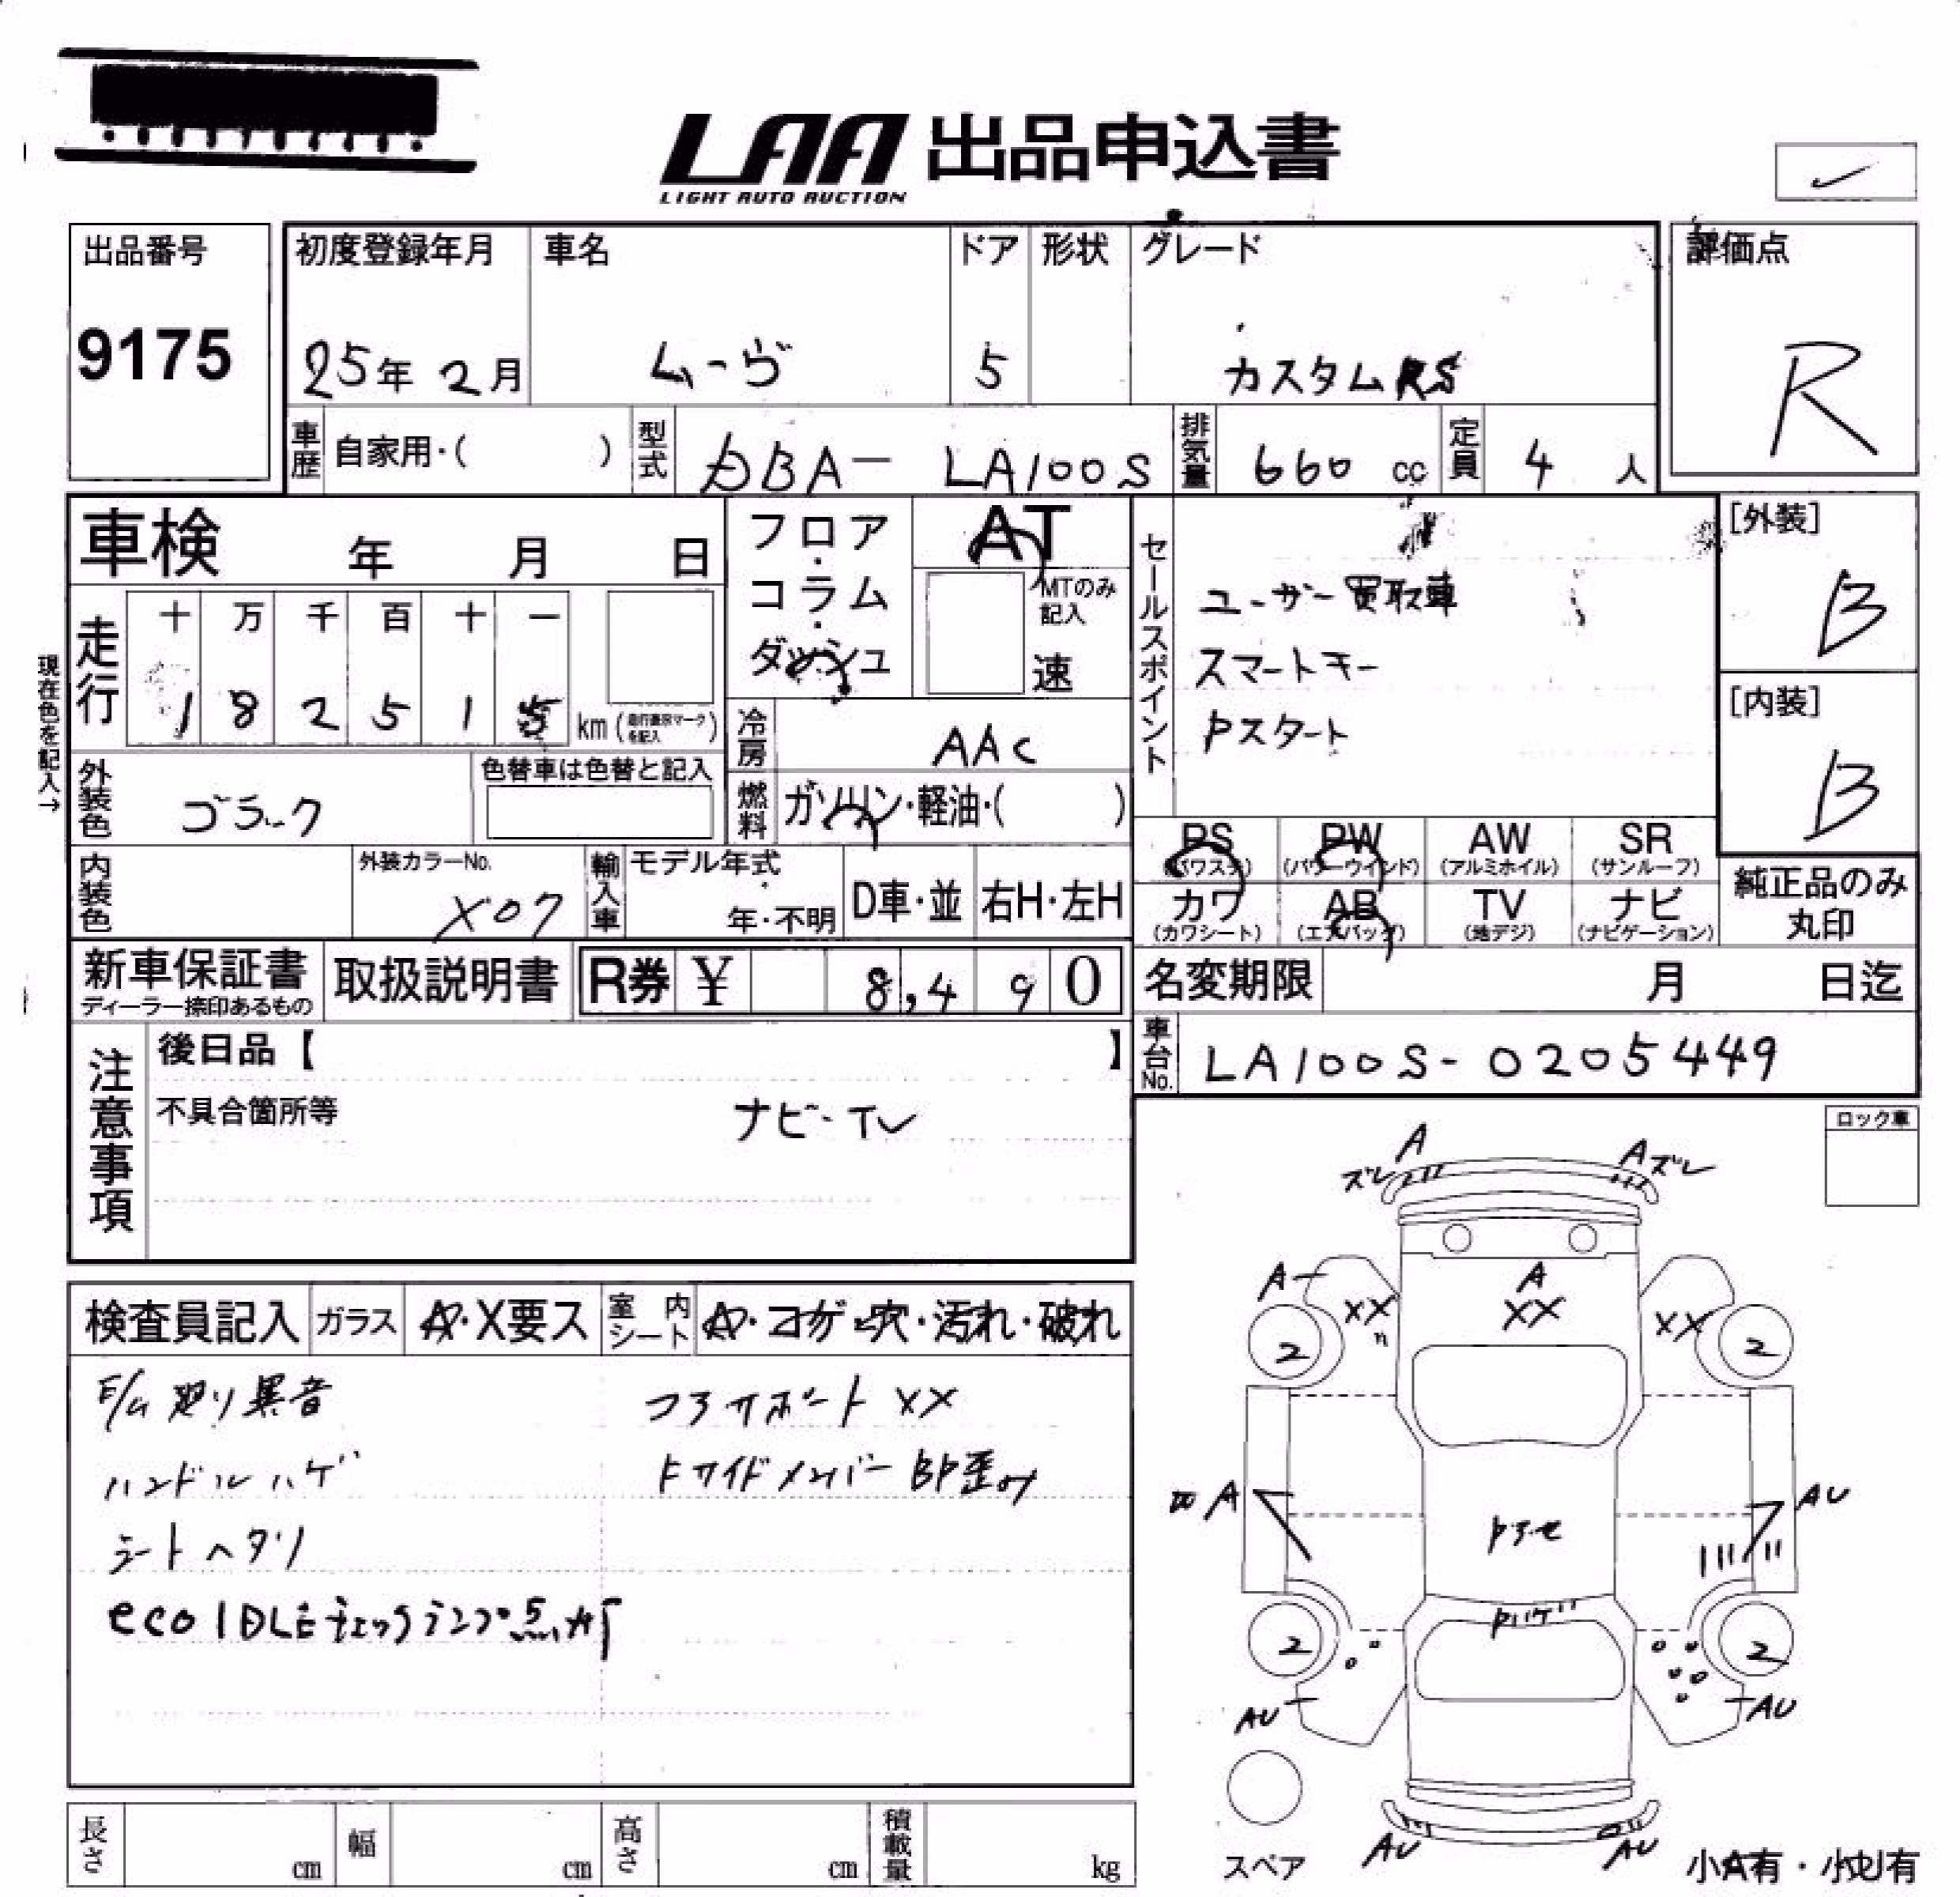 LAA 出品申込書
LIGHT AUTO AUCTION
出品番号
9175
初度登録年月
25年 2月
車名
ムーヴ
ドア
5
形状
グレード
カスタムRS
評価点
R
車歴
自家用・( )
型式
DBA- LA100S
排気量
660 cc
定員
4 人
車検 年 月 日
フロア・コラム・ダッシュ
AT
MTのみ記入
速
セールスポイント
ユーザー買取車
スマートキー
Pスタート
[外装]
B
[内装]
B
現在色を記入→
走行
十 万 千 百 十 一
1 8 2 5 1 5
km (走行表示マークを記入)
冷房
AAC
燃料
ガソリン・軽油・( )
外装色
ブラック
色替車は色替と記入
内装色
外装カラーNo.
X07
輸入車
モデル年式
年・不明
D車・並
右H・左H
PS (パワステ)
PW (パワーウインド)
AW (アルミホイル)
SR (サンルーフ)
カワ (カワシート)
AB (エアバッグ)
TV (地デジ)
ナビ (ナビゲーション)
純正品のみ丸印
新車保証書
ディーラー捺印あるもの
取扱説明書
R券 ¥ 8,490
名変期限 月 日迄
車台No.
LA100S-0205449
注意事項
後日品【 】
不具合箇所等
ナビ・TV
ロック車
検査員記入
ガラス
A・X要ス
室内シート
A・コゲ・穴・汚れ・破れ
E/G廻り異音
ハンドルハゲ
シートヘタリ
eco IDLEチェックランプ点灯
コアサポートXX
Fサイドメンバー BP歪み
A
ズレ
Aズレ
A
A
XX
XX
XX
2
2
A
AU
Pアセ
Pハゲ
2
2
AU
AU
AU
AU
スペア
小A有・小U有
長さ cm
幅 cm
高さ cm
積載量 kg